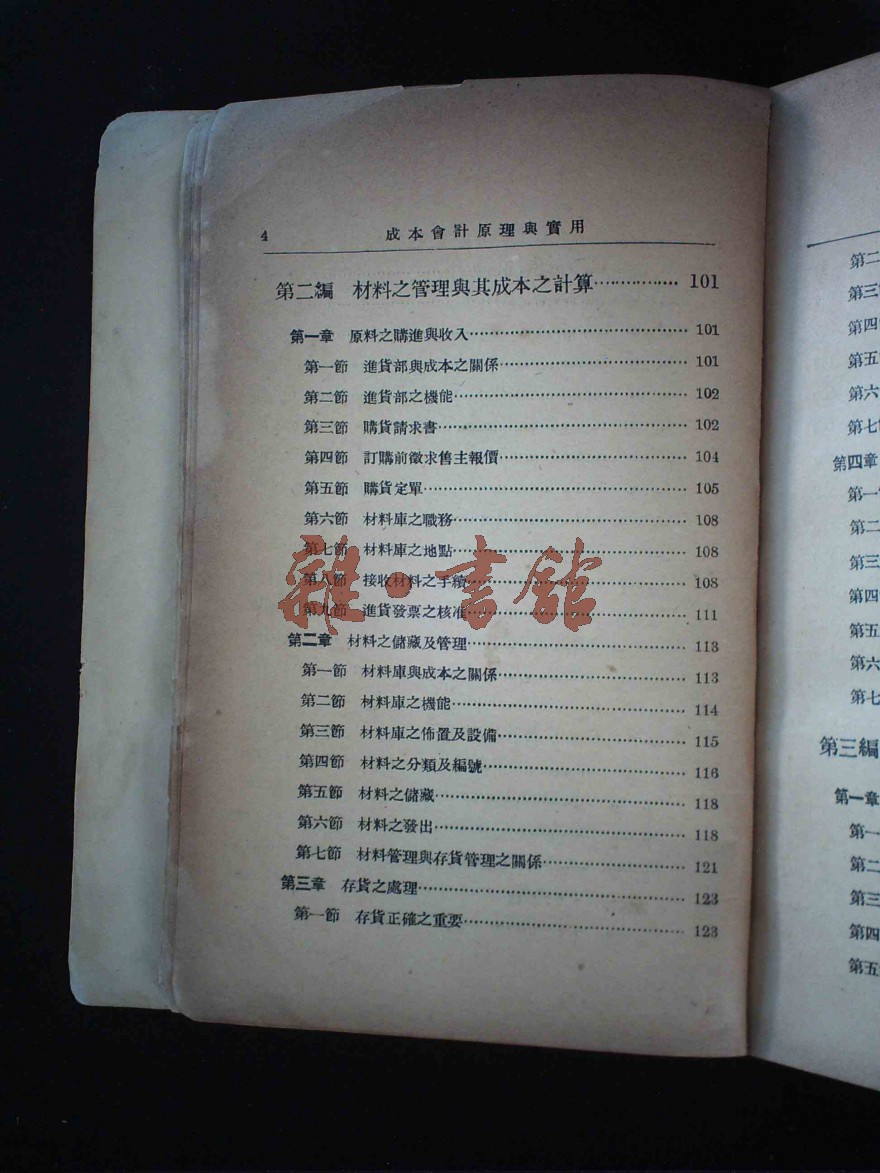 4 成本會計原理與實用
第二編 材料之管理與其成本之計算……………… 101
第一章 原料之購進與收入……………… 101
第一節 進貨部與成本之關係……………… 101
第二節 進貨部之機能……………… 102
第三節 購貨請求書……………… 102
第四節 訂購前徵求售主報價……………… 104
第五節 購貨定單……………… 105
第六節 材料庫之職務……………… 108
第七節 材料庫之地點……………… 108
第八節 接收材料之手續……………… 108
第九節 進貨發票之核准……………… 111
第二章 材料之儲藏及管理……………… 113
第一節 材料庫與成本之關係……………… 113
第二節 材料庫之機能……………… 114
第三節 材料庫之佈置及設備……………… 115
第四節 材料之分類及編號……………… 116
第五節 材料之儲藏……………… 118
第六節 材料之發出……………… 118
第七節 材料管理與存貨管理之關係……………… 121
第三章 存貨之處理……………… 123
第一節 存貨正確之重要……………… 123
雜·書館
第二
第三
第四
第五
第六
第七
第四章
第一
第二
第三
第四
第五
第六
第七
第三編
第一章
第一
第二
第三
第四
第五